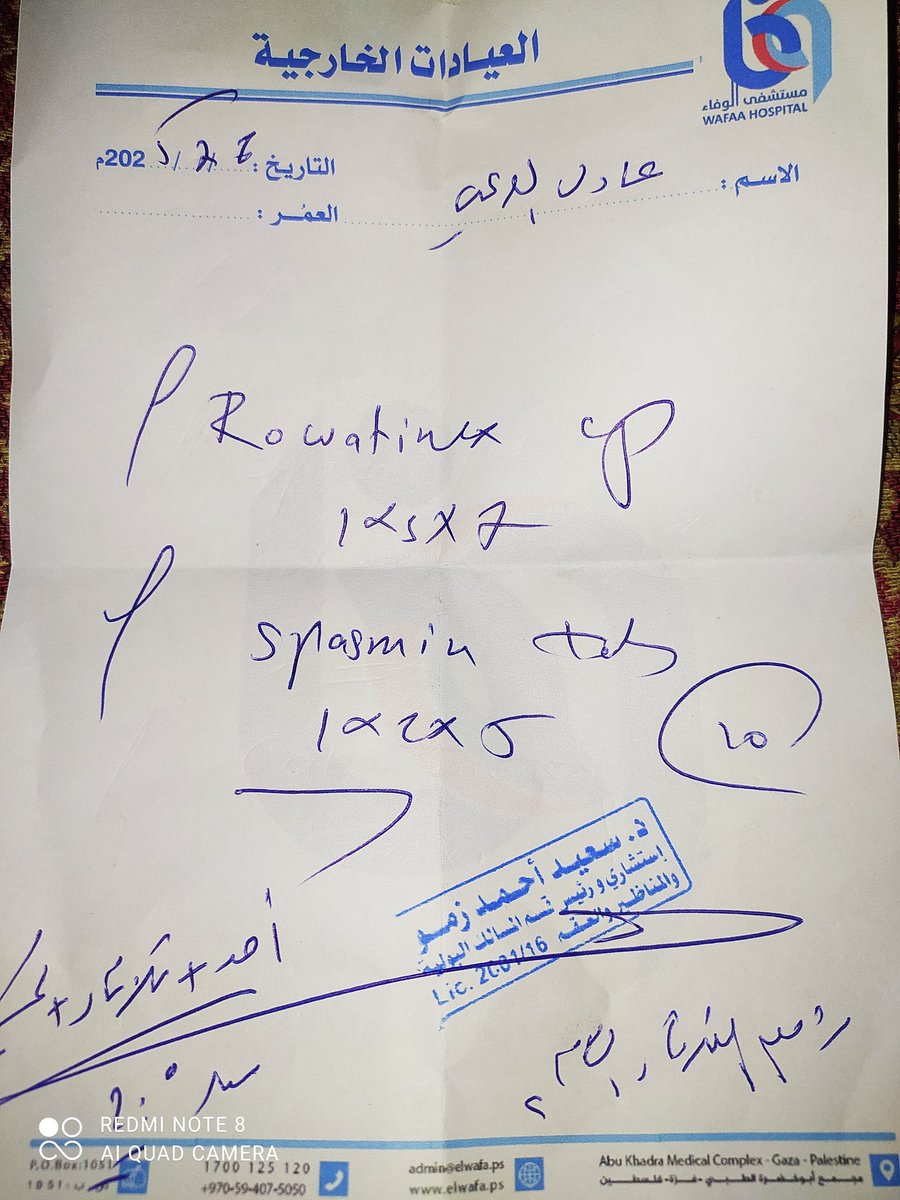 العيادات الخارجية
مستشفى الوفاء
WAFAA HOSPITAL
الاسم : عادل
التاريخ : 202م
العمُر :
Rowatinex cp
1 x 3 x 7
Spasmin tab
1 x 2 x 5
20
د. سعيد أحمد زمو
إستشاري ورئيس قسم المسالك البولية
والمناظير والعقم
Lic. 2001/16
أحد + ثلاثاء +
P.O.Box:1051
1700 125 120
+970-59-407-5050
admin@elwafa.ps
www.elwafa.ps
Abu Khadra Medical Complex - Gaza - Palestine
مجمع أبو خضرة الطبي - غزة - فلسطين
REDMI NOTE 8
AI QUAD CAMERA